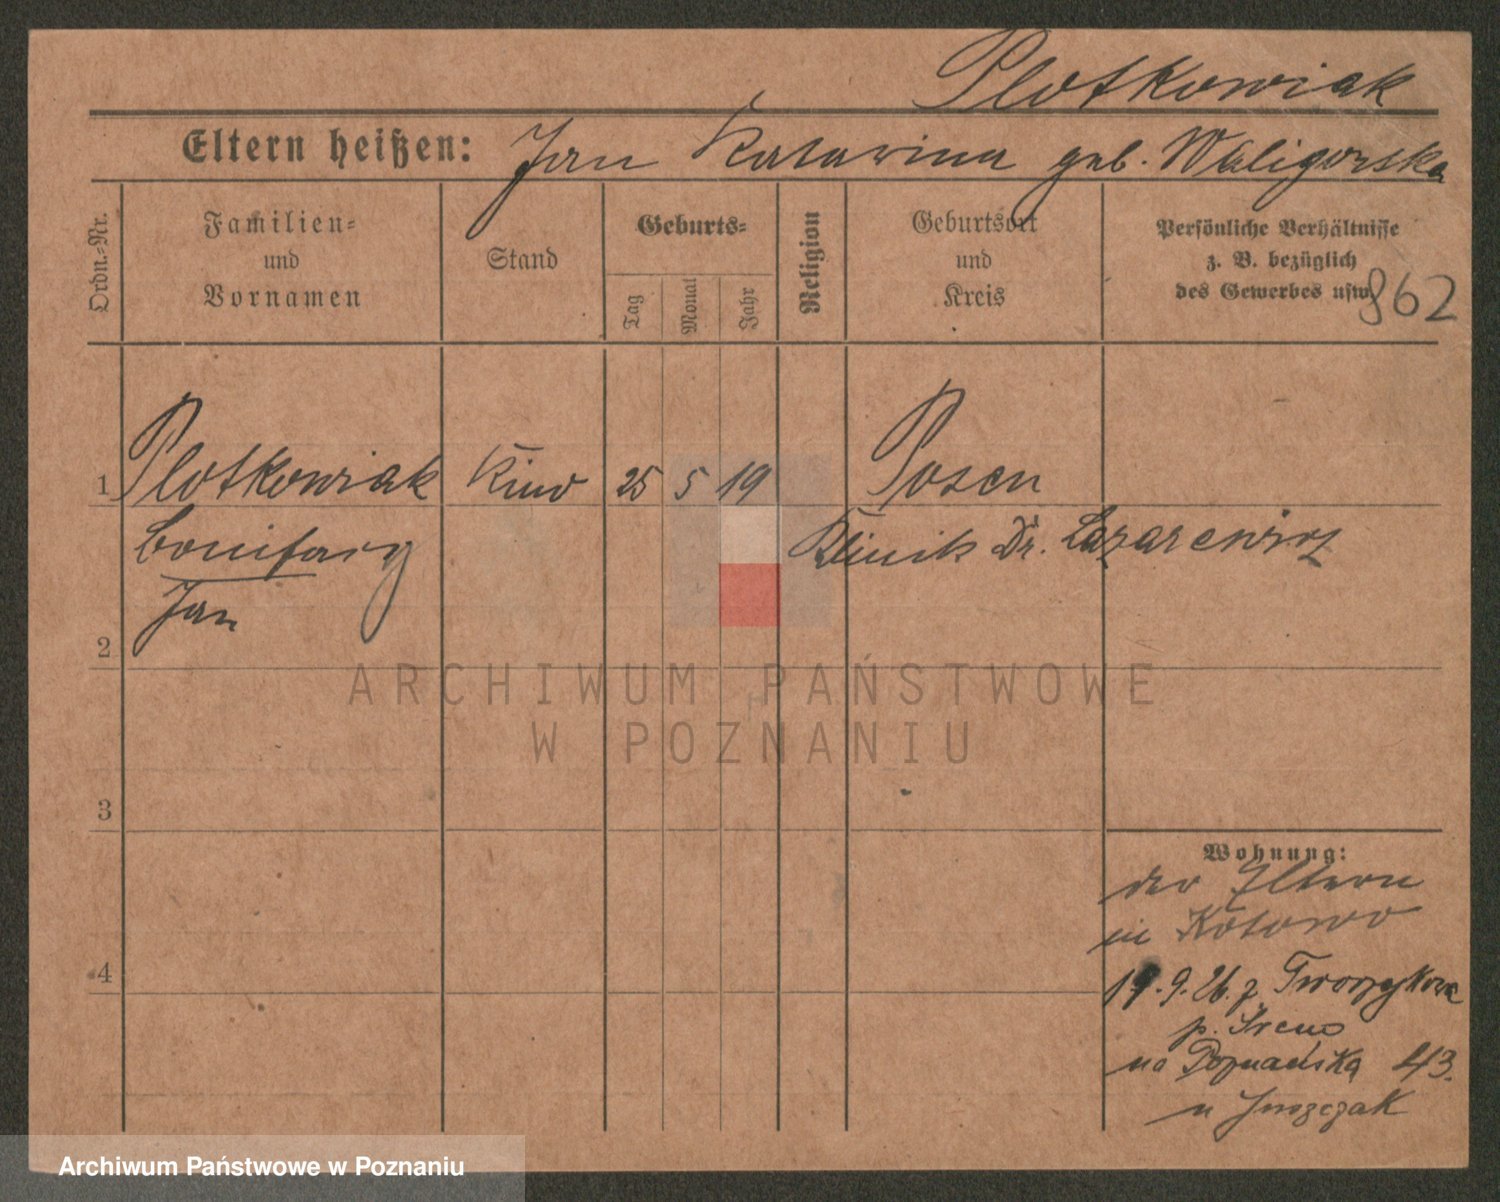 Plotkowiak
Eltern heißen: Jan Katarina geb. Waligorska
Ordn.-Nr.
Familien-
und
Vornamen
Stand
Geburts-
Tag
Monat
Jahr
Religion
Geburtsort
und
Kreis
Persönliche Verhältnisse
z. B. bezüglich
des Gewerbes usw.
862
1 Plotkowiak Kind 25 5 19 Posen
Bonifacy Klinik Dr. Lazarewicz
Jan
2
ARCHIWUM PAŃSTWOWE
W POZNANIU
3
Wohnung:
der Eltern
in Kotowo
4
19.9.26. z Tworzykowa
p. Śrem
na Poznańską 43.
u
Archiwum Państwowe w Poznaniu